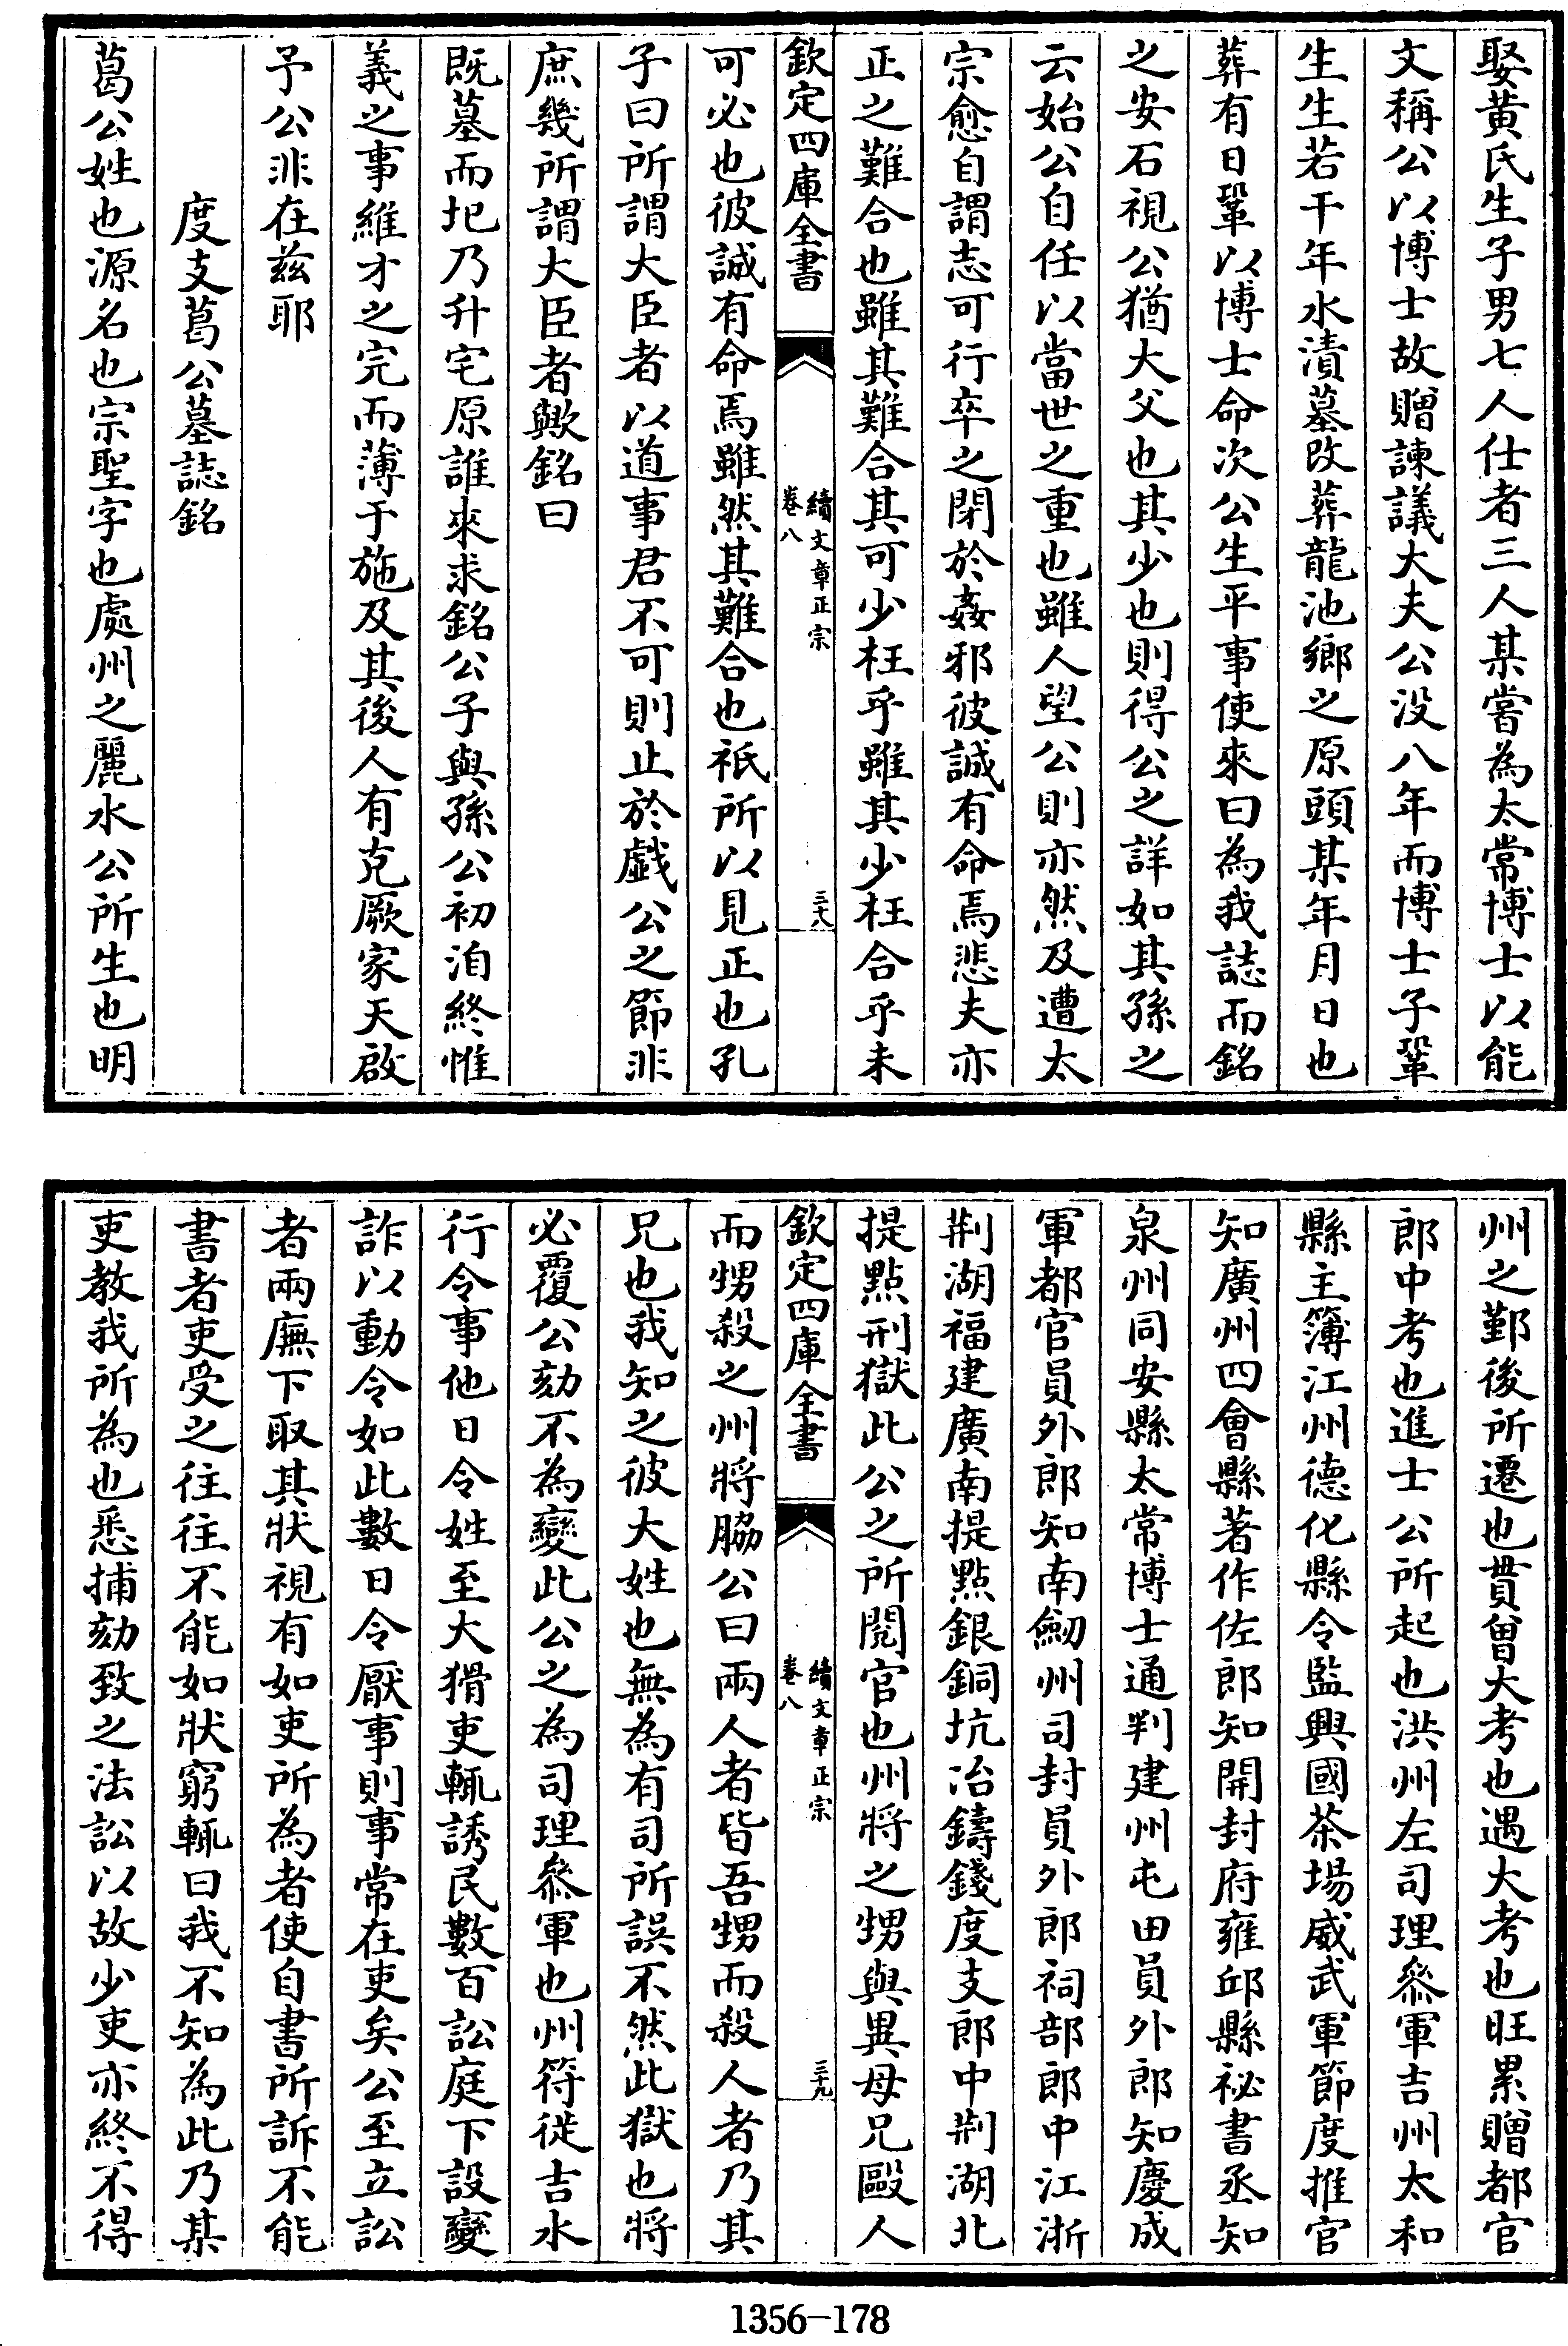 娶黃氏生子男七人仕者三人某嘗為太常博士以能
文稱公以博士故贈諫議大夫公没八年而博士子鞏
生生若干年水漬墓改葬龍池鄉之原頭某年月日也
葬有日鞏以博士命次公生平事使來曰為我誌而銘
之安石視公猶大父也其少也則得公之詳如其孫之
云始公自任以當世之重也雖人望公則亦然及遭太
宗愈自謂志可行卒之閉於姦邪彼誠有命焉悲夫亦
正之難合也雖其難合其可少枉乎雖其少枉合乎未
欽定四庫全書
續文章正宗
卷八
三十八
可必也彼誠有命焉雖然其難合也祇所以見正也孔
子曰所謂大臣者以道事君不可則止於戲公之節非
庶幾所謂大臣者歟銘曰
既墓而圯乃升宅原誰來求銘公子與孫公初洎終惟
義之事維才之完而薄于施及其後人有克厥家天啟
予公非在兹耶
度支葛公墓誌銘
葛公姓也源名也宗聖字也處州之麗水公所生也明
州之鄞後所遷也貫曾大考也遇大考也旺累贈都官
郎中考也進士公所起也洪州左司理叅軍吉州太和
縣主簿江州德化縣令監興國茶場威武軍節度推官
知廣州四會縣著作佐郎知開封府雍邱縣祕書丞知
泉州同安縣太常博士通判建州屯田員外郎知慶成
軍都官員外郎知南劒州司封員外郎祠部郎中江浙
荆湖福建廣南提點銀銅坑冶鑄錢度支郎中荆湖北
提點刑獄此公之所閲官也州將之甥與異母兄毆人
欽定四庫全書
續文章正宗
卷八
三十九
而甥殺之州將脇公曰兩人者皆吾甥而殺人者乃其
兄也我知之彼大姓也無為有司所誤不然此獄也將
必覆公劾不為變此公之為司理叅軍也州符徙吉水
行令事他日令姓至大猾吏輒誘民數百訟庭下設變
詐以動令如此數日令厭事則事常在吏矣公至立訟
者兩廡下取其狀視有如吏所為者使自書所訴不能
書者吏受之往往不能如狀窮輒曰我不知為此乃某
吏教我所為也悉捕劾致之法訟以故少吏亦終不得
1356-178